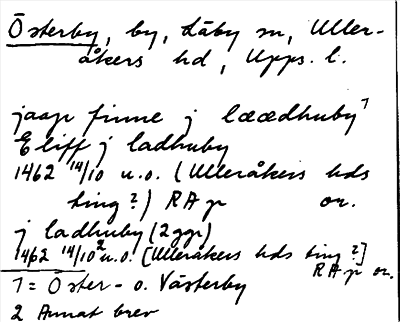 Österby, by, Läby sn, Uller-
åkers hd, Upps. l.
jaap finne j læædhuby 1
Eliff j ladhuby
1462 14/10 u.o. (Ulleråkers hds
ting?) RA p or.
j ladhuby (2 ggr)
1462 14/10 2 u.o. [Ulleråkers hds ting?]
RA p or.
1 = Öster- o. Västerby
2 Annat brev